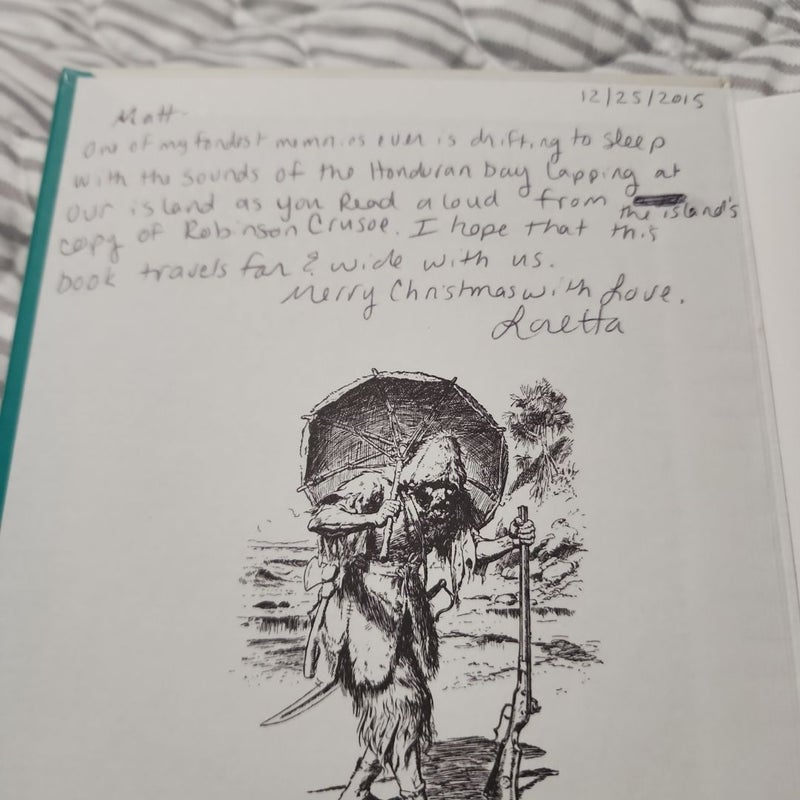 12/25/2015
Matt-
One of my fondest memories ever is drifting to sleep
with the sounds of the Honduran bay lapping at
our island as you Read aloud from the island's
copy of Robinson Crusoe. I hope that this
book travels far & wide with us.
Merry Christmas with Love,
Loretta